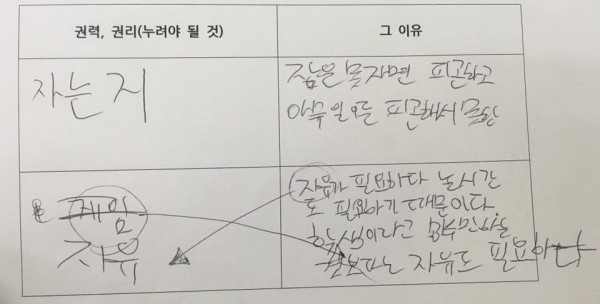 권력, 권리(누려야 될 것)
그 이유
자는 거
잠을 못자면 피곤하고
아무일이든 피곤해서 못함
게임
자유
자유가 필요하다 노는시간
도 필요하기 때문이다
학생이라고 공부만하는
보다는 자유도 필요하다